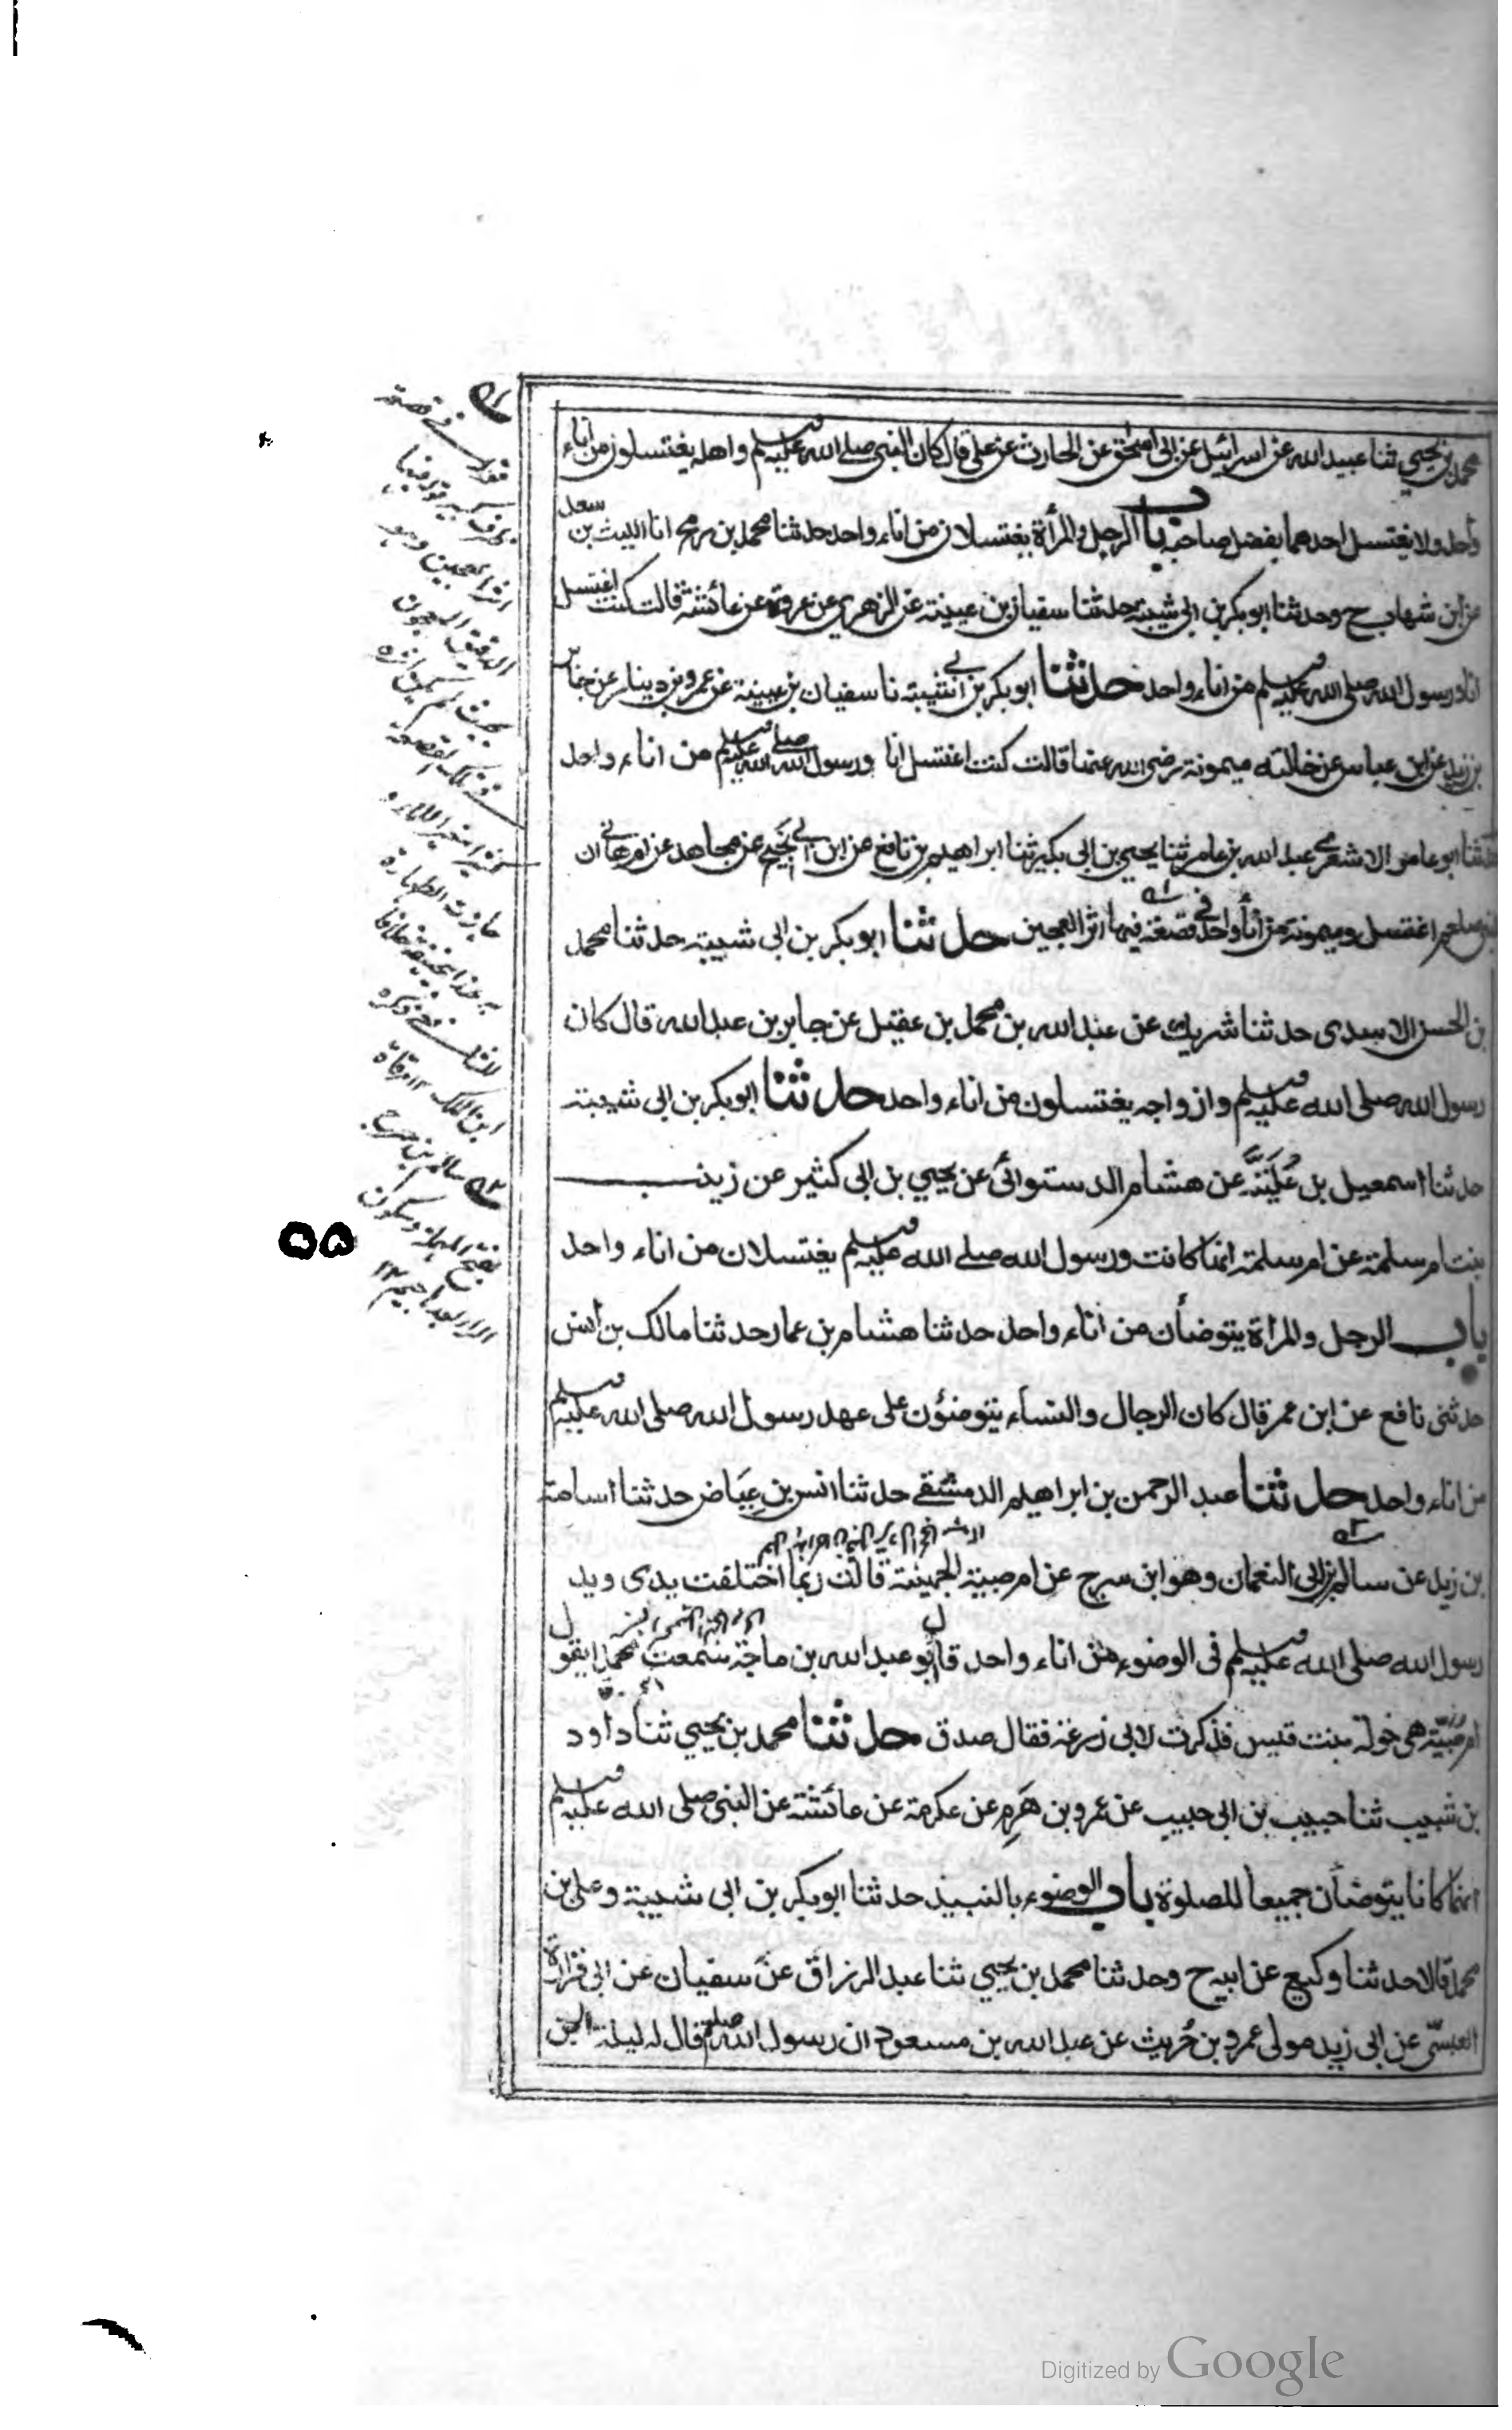 محمد بن يحيي ثنا عبيد الله عن اسرائيل عن ابى اسحق عن الحارث عن علي قال كان النبى صلى الله عليه وسلم واهله يغتسلون من اناء
واحد ولا يغتسل احدهما بفضل صاحبه باب الرجل والمرأة يغتسلان من اناء واحد حدثنا محمد بن رمح انا الليث بن سعد
عن ابن شهاب ح وحدثنا ابو بكر بن ابى شيبة حدثنا سفيان بن عيينة عن الزهري عن عروة عن عائشة قالت كنت اغتسل
انا ورسول الله صلى الله عليه وسلم من اناء واحد حدثنا ابو بكر بن ابى شيبة نا سفيان بن عيينة عن عمرو بن دينار عن جابر
بن زيد عن ابن عباس عن خالته ميمونة رضى الله عنها قالت كنت اغتسل انا ورسول الله صلى الله عليه وسلم من اناء واحد
حدثنا ابو عامر الاشعري عبد الله بن عامر ثنا يحيي بن ابى بكير ثنا ابراهيم بن نافع عن ابن ابي نجيح عن مجاهد عن ام هاني ان
النبى صلعم اغتسل وميمونة من اناء واحد في قصعة فيها اثر العجين حدثنا ابو بكر بن ابى شيبة حدثنا محمد
بن الحسن الاسدى حدثنا شريك عن عبد الله بن محمد بن عقيل عن جابر بن عبد الله قال كان
رسول الله صلى الله عليه وسلم وازواجه يغتسلون من اناء واحد حدثنا ابو بكر بن ابى شيبة
حدثنا اسمعيل بن عُلَيَّة عن هشام الدستوائى عن يحيي بن ابى كثير عن زينب
بنت ام سلمة عن ام سلمة انها كانت ورسول الله صلى الله عليه وسلم يغتسلان من اناء واحد
باب الرجل والمرأة يتوضأن من اناء واحد حدثنا هشام بن عمار حدثنا مالك بن انس
حدثنى نافع عن ابن عمر قال كان الرجال والنساء يتوضؤن على عهد رسول الله صلى الله عليه وسلم
من اناء واحد حدثنا عبد الرحمن بن ابراهيم الدمشقي حدثنا انس بن عِيَاض حدثنا اسامة
بن زيد عن سالم بن ابى النعمان وهو ابن سرج عن ام صبية الجهينة قالت ربما اختلفت يدى ويد
رسول الله صلى الله عليه وسلم فى الوضوء من اناء واحد قال ابو عبد الله بن ماجة سمعت محمدا يقول
ام صُبَيَّة هى خولة بنت قيس فذكرت لابى زرعة فقال صدق حدثنا محمد بن يحيي ثنا داود
بن شبيب ثنا حبيب بن ابى حبيب عن عمرو بن هَرِم عن عكرمة عن عائشة عن النبى صلى الله عليه وسلم
انهما كانا يتوضأن جميعا للصلوة باب الوضوء بالنبيذ حدثنا ابو بكر بن ابى شيبة وعلى بن
محمد قالا حدثنا وكيع عن ابيه ح وحدثنا محمد بن يحيي ثنا عبد الرزاق عن سفيان عن ابى فزارة
العبسّى عن ابى زيد مولى عمرو بن حُريث عن عبد الله بن مسعود ان رسول الله صلعم قال له ليلة الجن
قوله في قصعة
اثر العجين وهو
الدقيق المعجون
بحيث لم يكن اثره
فى تلك القصعة
جازت الطهارة
ابن الملك ١٢ مرقاة
سالم بن سرج
بفتح المهملة وسكون
الراء بعدها جيم ١٢
۵۵
Digitized by Google